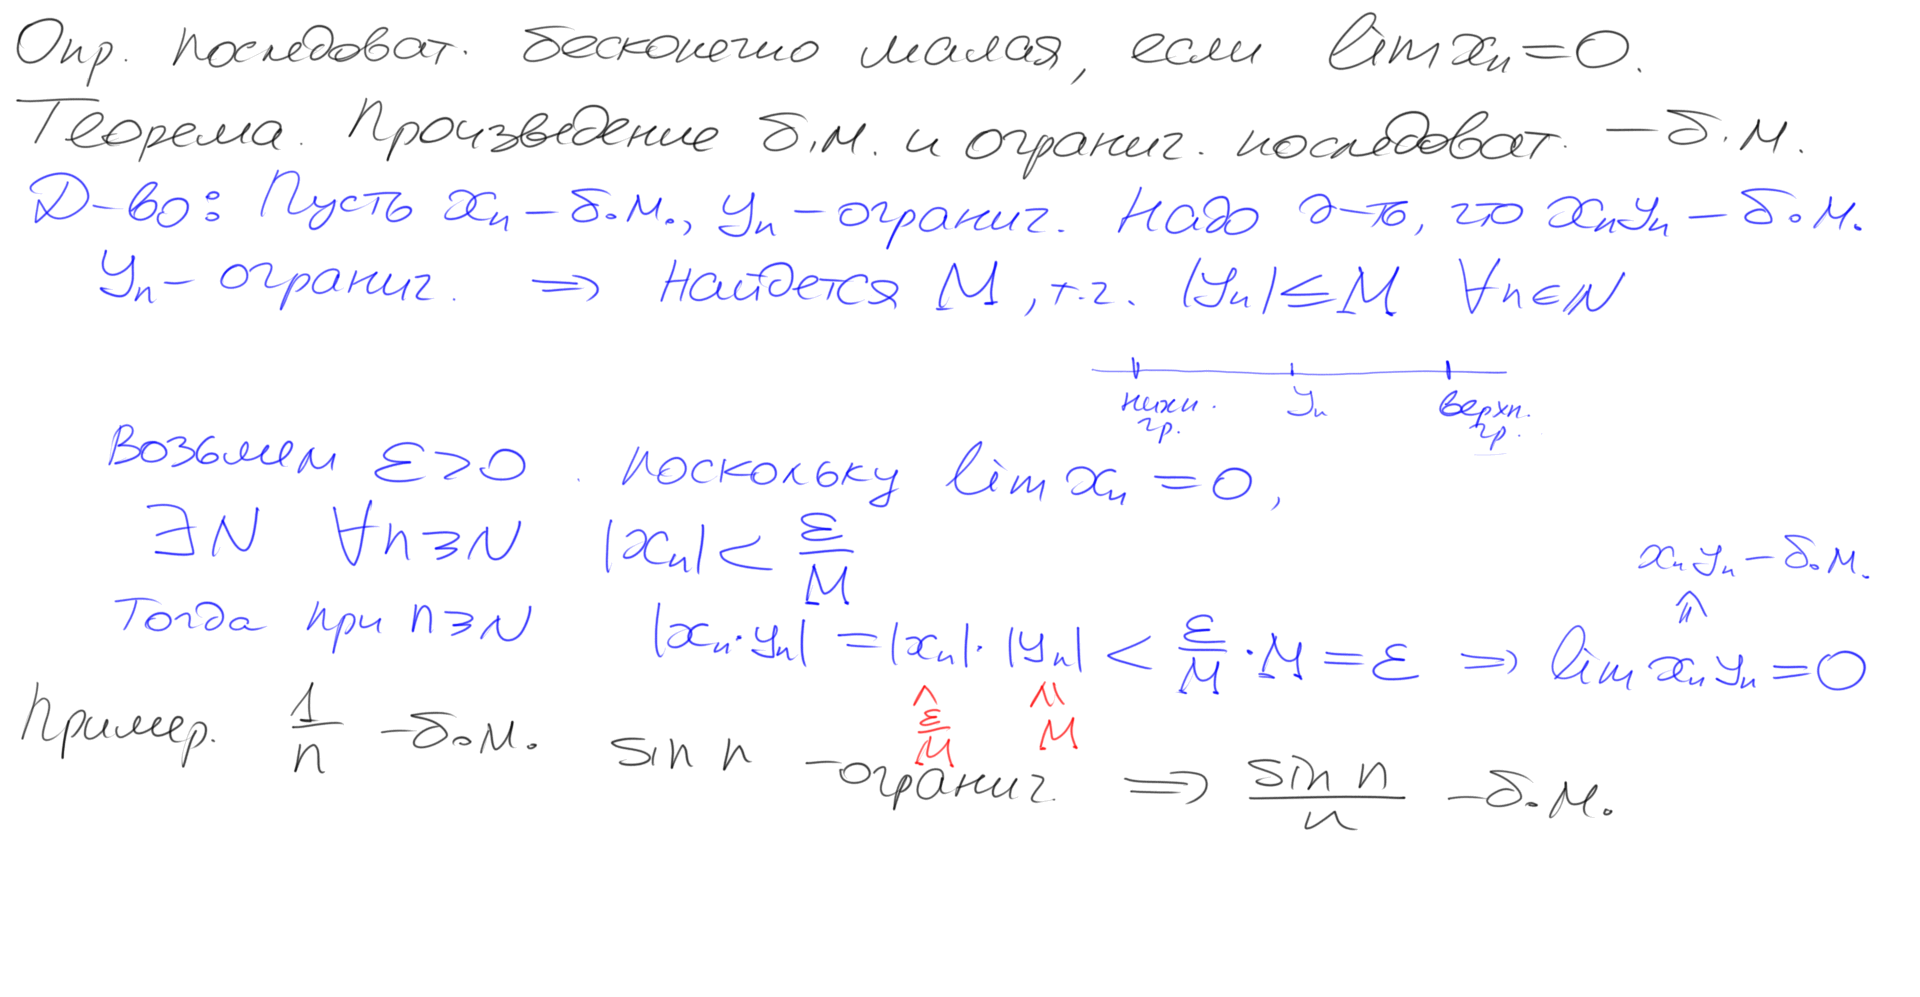 Опр. последоват. бесконечно малая, если lim xₙ = 0.
Теорема. Произведение б.м. и огранич. последоват. – б.м.
Д-во: Пусть xₙ – б.м., yₙ – огранич. Надо д-ть, что xₙyₙ – б.м.
yₙ – огранич. ⇒ найдется M, т.ч. |yₙ| ≤ M ∀n∈ℕ
нижн. гр. yₙ верхн. гр.
Возьмем ε>0. поскольку lim xₙ = 0,
∃N ∀n≥N |xₙ| < ε/M
xₙyₙ – б.м.
⇑
Тогда при n≥N |xₙ·yₙ| = |xₙ|·|yₙ| < ε/M · M = ε ⇒ lim xₙyₙ = 0
∧ ε/M ∧ı M
Пример. 1/n – б.м. sin n – огранич. ⇒ sin n/n – б.м.